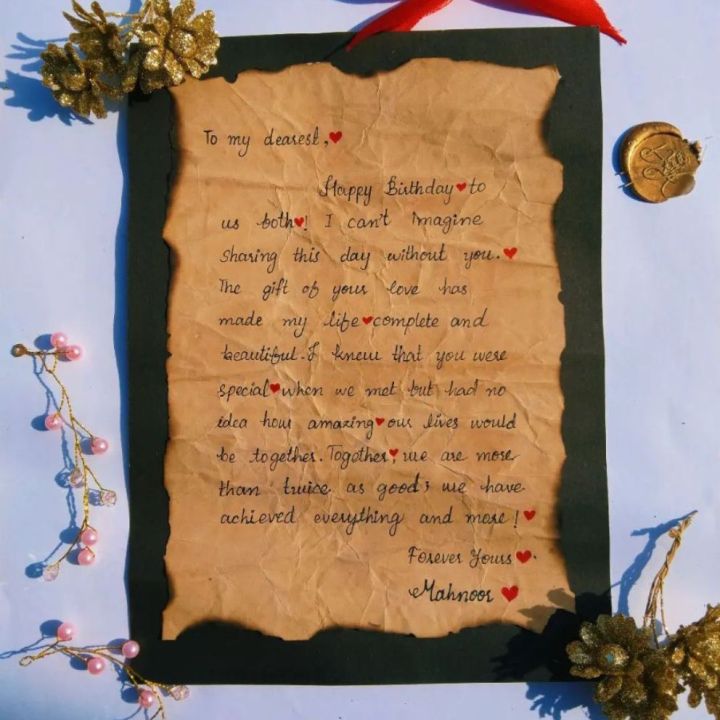 To my dearest,♥
Happy Birthday♥to
us both♥! I can't imagine
sharing this day without you.♥
The gift of your love has
made my life♥complete and
beautiful. I knew that you were
special♥when we met but had no
idea how amazing♥our lives would
be together. Together♥, we are more
than twice as good; we have
achieved everything and more!♥
Forever Yours♥.
Mahnoor♥